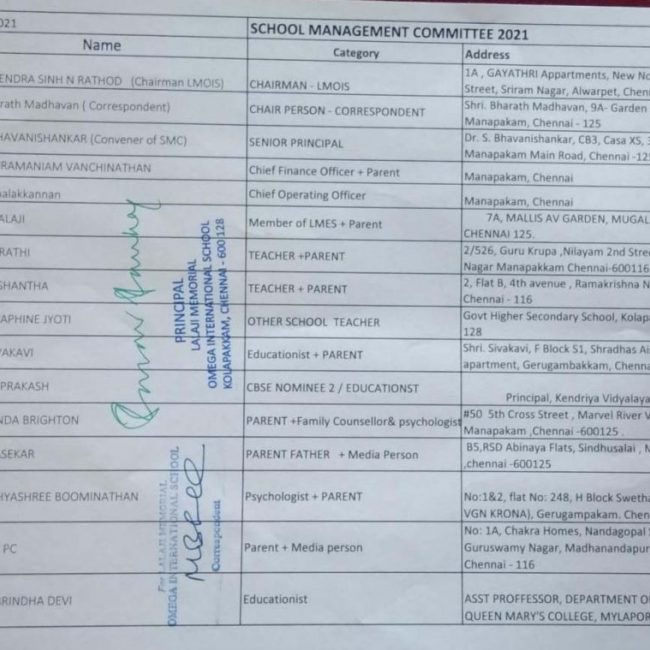 021 SCHOOL MANAGEMENT COMMITTEE 2021
Name Category Address
ENDRA SINH N RATHOD (Chairman LMOIS) CHAIRMAN - LMOIS 1A , GAYATHRI Appartments, New No
Street, Sriram Nagar, Alwarpet, Chen
rath Madhavan ( Correspondent) CHAIR PERSON - CORRESPONDENT Shri. Bharath Madhavan, 9A- Garden
Manapakam, Chennai - 125
HAVANISHANKAR (Convener of SMC) SENIOR PRINCIPAL Dr. S. Bhavanishankar, CB3, Casa XS, 3
Manapakam Main Road, Chennai -12
RAMANIAM VANCHINATHAN Chief Finance Officer + Parent Manapakam, Chennai
alakkannan Chief Operating Officer Manapakam, Chennai
ALAJI Member of LMES + Parent 7A, MALLIS AV GARDEN, MUGAL
CHENNAI 125.
RATHI TEACHER +PARENT 2/526, Guru Krupa ,Nilayam 2nd Stree
Nagar Manapakkam Chennai-600116
SHANTHA TEACHER + PARENT 2, Flat B, 4th avenue , Ramakrishna N
Chennai - 116
APHINE JYOTI OTHER SCHOOL TEACHER Govt Higher Secondary School, Kolapa
128
VAKAVI Educationist + PARENT Shri. Sivakavi, F Block S1, Shradhas Ai
apartment, Gerugambakkam, Chenna
PRAKASH CBSE NOMINEE 2 / EDUCATIONST
Principal, Kendriya Vidyalaya
NDA BRIGHTON PARENT +Family Counsellor& psychologist #50 5th Cross Street , Marvel River V
Manapakam ,Chennai -600125 .
ASEKAR PARENT FATHER + Media Person B5,RSD Abinaya Flats, Sindhusalai , M
,chennai -600125
HYASHREE BOOMINATHAN Psychologist + PARENT No:1&2, flat No: 248, H Block Swetha
VGN KRONA), Gerugampakam. Chen
PC Parent + Media person No: 1A, Chakra Homes, Nandagopal
Guruswamy Nagar, Madhanandapur
Chennai - 116
BRINDHA DEVI Educationist ASST PROFFESSOR, DEPARTMENT O
QUEEN MARY'S COLLEGE, MYLAPOR
PRINCIPAL
LALAJI MEMORIAL
OMEGA INTERNATIONAL SCHOOL
KOLAPAKKAM, CHENNAI - 600 128
For LALAJI MEMORIAL
OMEGA INTERNATIONAL SCHOOL
Correspondent